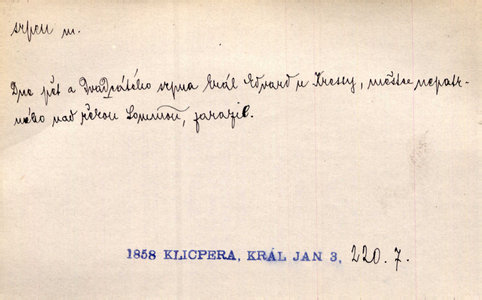 srpen m.
Dne pět a Dvadcátého srpna král Edvard u Kressy, městce nepatr-
ného nad řekou Sommou, porazil.
1858 KLICPERA, KRÁL JAN 3, 220.7.